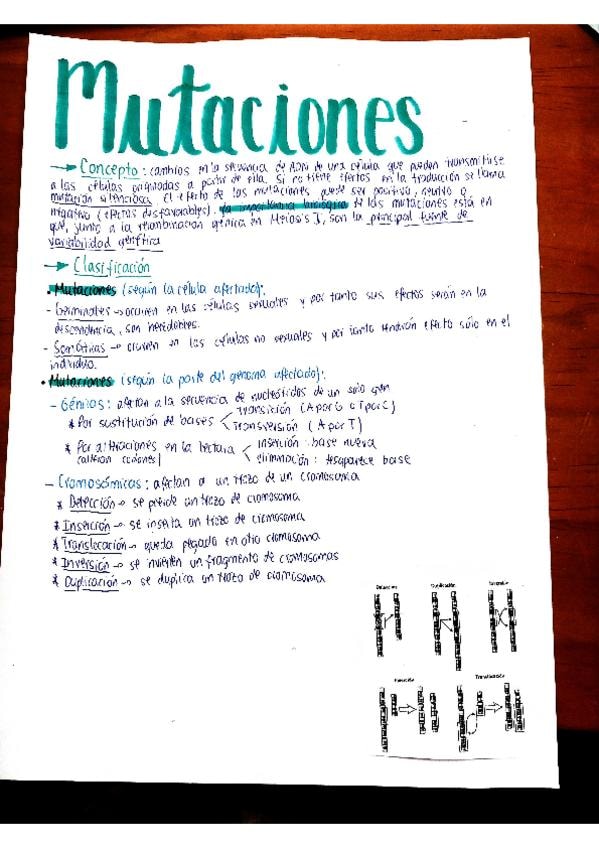 Mutaciones
→ Concepto: cambios en la secuencia de ADN de una célula que pueden transmitirse
a las células originadas a partir de ella. Si no tiene efectos en la traducción se llama
mutación silenciosa. El efecto de las mutaciones puede ser positivo, neutro o
negativo (efectos desfavorables). La importancia biológica de las mutaciones está en
que, junto a la recombinación génica en Meiosis I, son la principal fuente de
variabilidad genética
→ Clasificación
• Mutaciones (según la célula afectada):
- Germinales → ocurren en las células sexuales y por tanto sus efectos serán en la
descendencia, son heredables.
- Somáticas → ocurren en las células no sexuales y por tanto tendrán efecto sólo en el
individuo.
• Mutaciones (según la parte del genoma afectado):
- Génicas: afectan a la secuencia de nucleótidos de un solo gen
* Por sustitución de bases < Transición (A por G o T por C)
Transversión (A por T)
* Por alteraciones en la lectura < inserción: base nueva
(alteran codones) eliminación: desaparece base
- Cromosómicas: afectan a un trozo de un cromosoma
* Delección → se pierde un trozo de cromosoma
* Inserción → se inserta un trozo de cromosoma
* Translocación → queda pegado en otro cromosoma
* Inversión → se invierten un fragmento de cromosomas
* Duplicación → se duplica un trozo de cromosoma
Duplicación
Inserción
Translocación